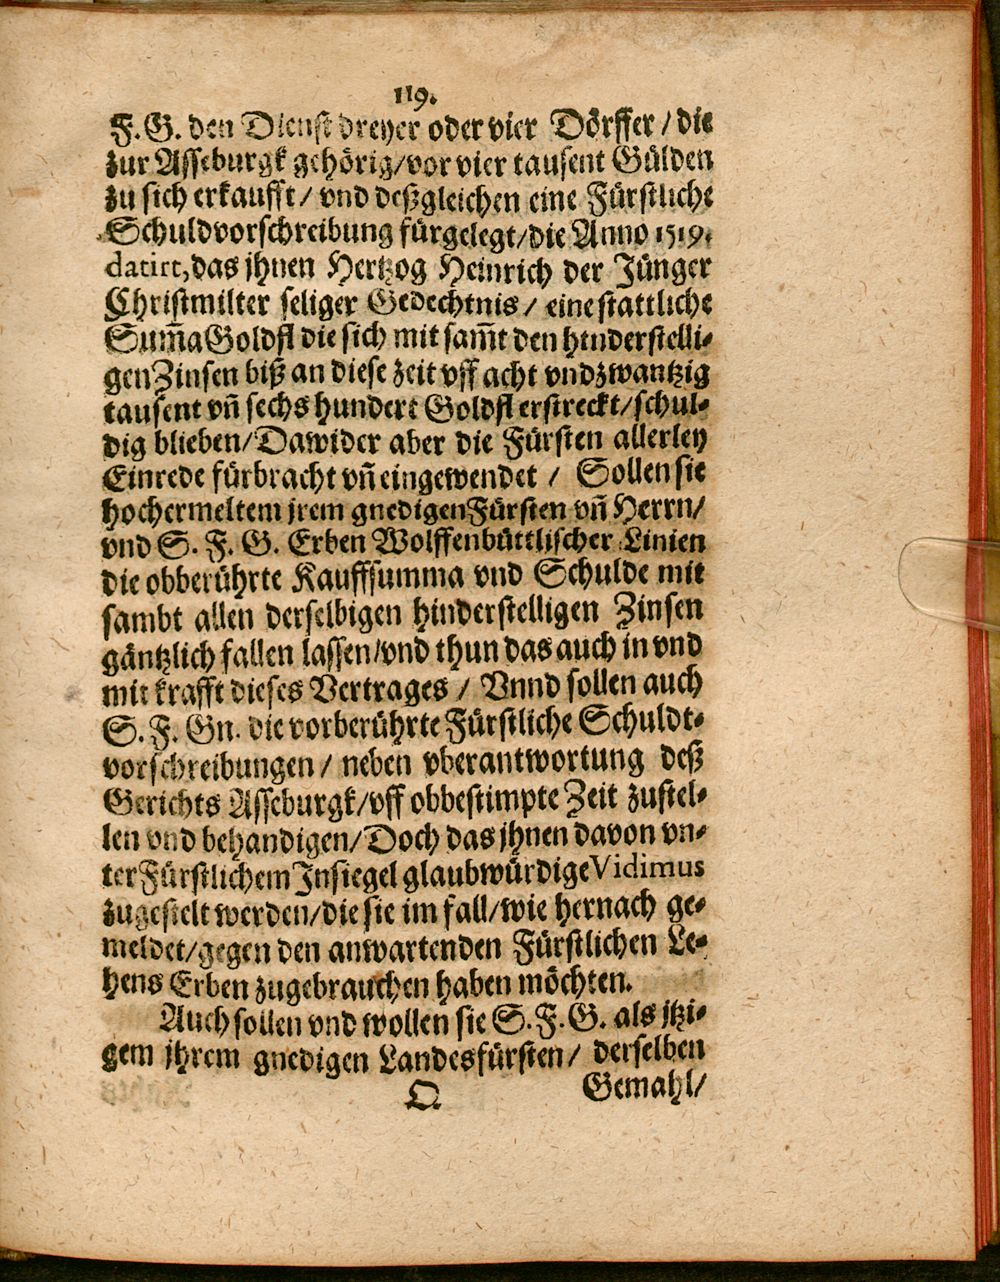 119.
F. G. den Dienst dreyer oder vier Dörffer / die
zur Asseburgk gehörig/vor vier tausent Gülden
zu sich erkaufft / vnd deßgleichen eine Fürstliche
Schuldvorschreibung fürgelegt/die Anno 1519.
datirt, das jhnen Hertzog Heinrich der Jünger
Christmilter seliger Gedechtnis / eine stattliche
Sum̃a Goldfl die sich mit sam̃t den hinderstelli-
gen Zinsen biß an diese zeit vff acht vnd zwantzig
tausent vñ sechs hundert Goldfl erstreckt/schul-
dig blieben/Dawider aber die Fürsten allerley
Einrede fürbracht vñ eingewendet / Sollen sie
hochermeltem jrem gnedigen Fürsten vñ Herrn/
vnd S. F. G. Erben Wolffenbüttlischer Linien
die obberührte Kauffsumma vnd Schulde mit
sambt allen derselbigen hinderstelligen Zinsen
gäntzlich fallen lassen/vnd thun das auch in vnd
mit krafft dieses Vertrages / Vnnd sollen auch
S. F. Gn. die vorberührte Fürstliche Schuldt-
vorschreibungen / neben vberantwortung deß
Gerichts Asseburgk/vff obbestimpte Zeit zustel-
len vnd behandigen/Doch das jhnen davon vn-
ter Fürstlichem Insiegel glaubwürdige Vidimus
zugestelt werden/die sie im fall/wie hernach ge-
meldet/gegen den anwartenden Fürstlichen Le-
hens Erben zugebrauchen haben möchten.
Auch sollen vnd wollen sie S. F. G. als jtzi-
gem jhrem gnedigen Landesfürsten / derselben
Q Gemahl/